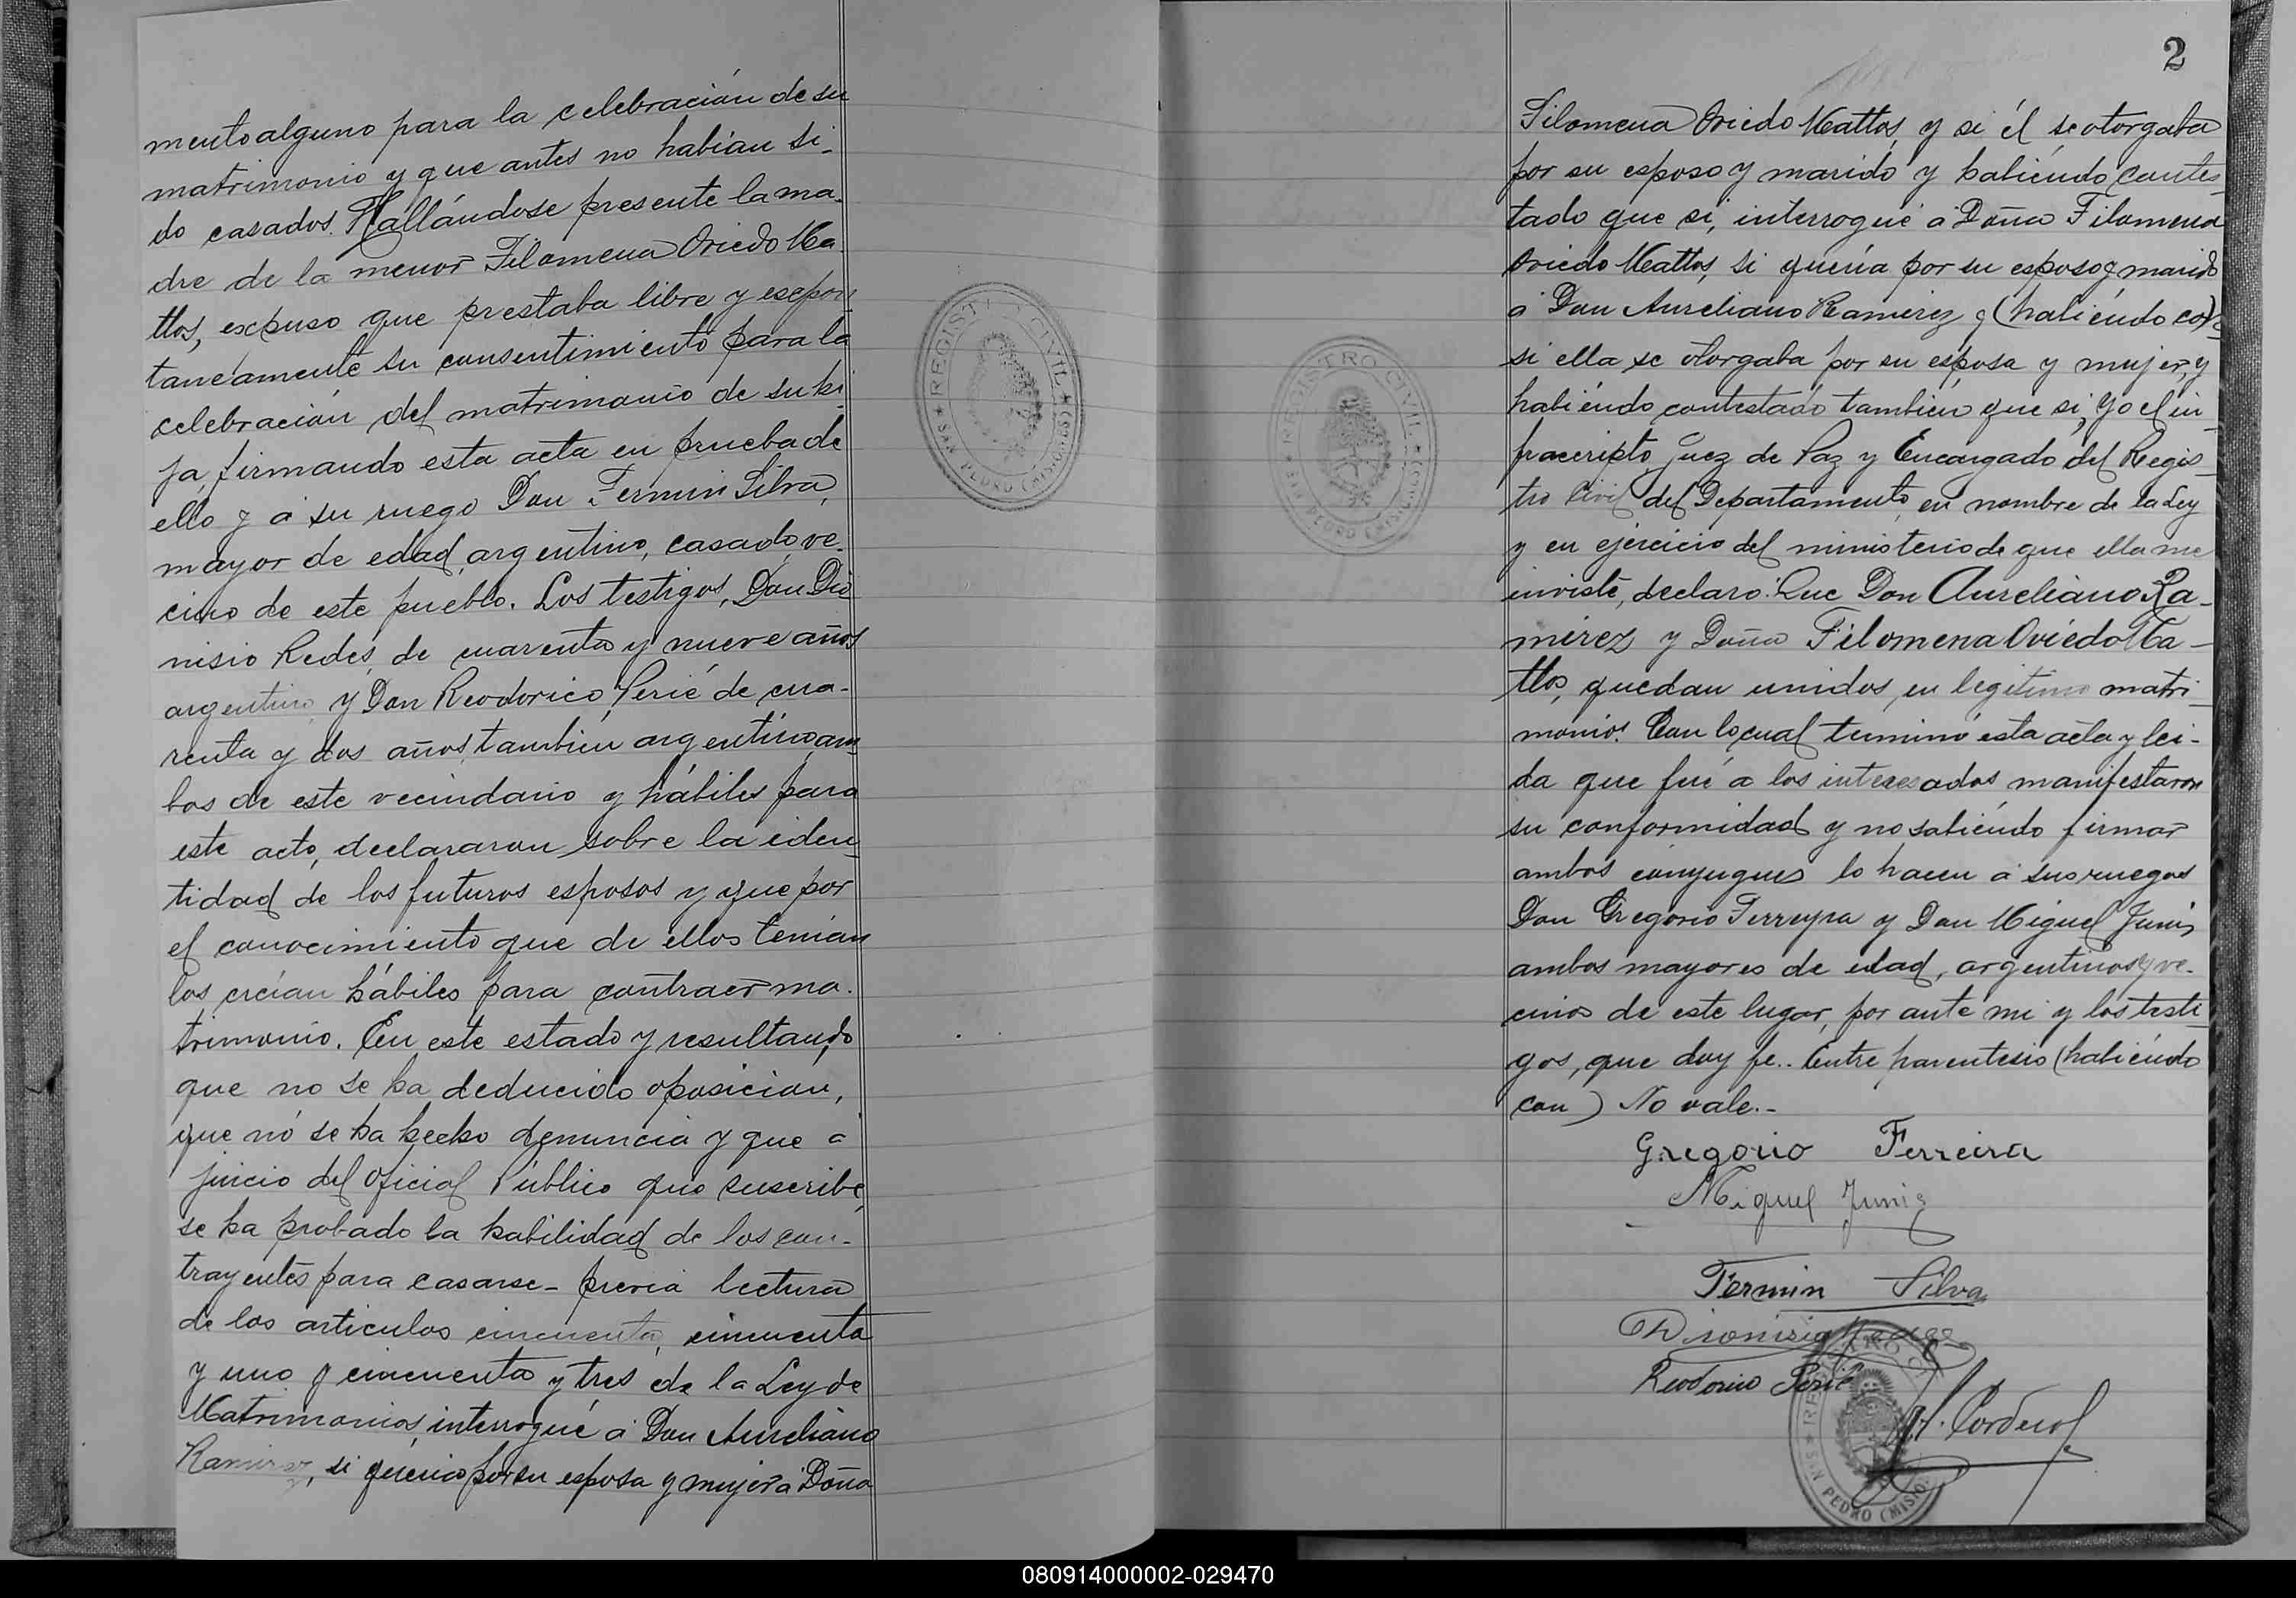 mento alguno para la celebración de su
matrimonio y que antes no habían si-
do casados. Hallándose presente la ma-
dre de la menor Filomena Oviedo Ma-
ttos, expuso que prestaba libre y espon
taneamente su consentimiento para la
celebración del matrimonio de su hi-
ja firmando esta acta en prueba de
ello y á su ruego Don Fermin Silva,
mayor de edad, argentino, casado, ve-
cino de este pueblo. Los testigos, Don Dio
nisio Redes, de cuarenta y nueve años
argentino y Don Reodorico Perié de cua-
renta y dos años, tambien argentino am-
bos de este vecindario y hábiles para
este acto, declararon sobre la iden-
tidad de los futuros esposos y que por
el conocimiento que de ellos tenían
los creían hábiles para contraer ma-
trimonio. En este estado y resultando
que no se ha deducido oposición,
que nó se ha hecho denuncia y que á
juicio del Oficial Público que suscribe,
se ha probado la habilidad de los con-
trayentes para casarse- previa lectura
de los articulos cincuenta, cincuenta
y uno y cincuenta y tres de la Ley de
Matrimonios, interrogué á Don Aureliano
Ramirez, si queria por su esposa y mujer á Doña
REGISTRO CIVIL
SAN PEDRO (MISIONES)
2
Filomena Oviedo Mattos, y si él se otorgaba
por su esposo y marido y habiendo contes-
tado que si, interrogué á Doña Filomena
Oviedo Mattos, si quería por su esposo y marido
á Don Aureliano Ramirez y (habiendo con)
si ella se otorgaba por su esposa y mujer, y
habiendo contestado tambien que si, yo el in-
frascripto Juez de Paz y Encargado del Regis-
tro Civil del Departamento, en nombre de la Ley
y en ejercicio del ministerio de que ella me
inviste, declaro: Que Don Aureliano Ra-
mirez y Doña Filomena Oviedo Ma-
ttos, quedan unidos en legitimo matri-
monio. Con lo cual terminó esta acta y lei-
da que fué á los interesados manifestaron
su conformidad y no sabiendo firmar
ambos conyugues lo hacen á sus ruegos
Don Gregorio Ferreyra y Don Miguel Juniz
ambos mayores de edad, argentinos y ve-
cinos de este lugar, por ante mi y los testi-
gos, que doy fe.. Entre parentesis (habiendo
con) No vale.-
REGISTRO CIVIL
SAN PEDRO (MISIONES)
Gregorio Ferreira
Miguel Juniz
Fermin Silva
Dionisio Redes
Reodorico Perié
Cordero
REGISTRO CIVIL
SAN PEDRO (MISIO
080914000002-029470